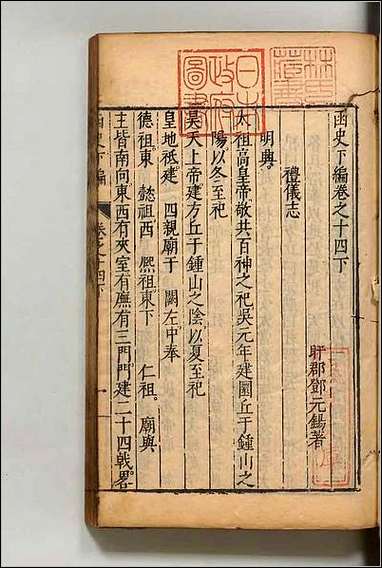 函史下編卷之十四下
盱郡鄧元錫著
禮儀志
明典
太祖高皇帝敬共百神之祀吳元年建圜丘于鍾山之
陽以冬至祀
昊天上帝建方丘于鍾山之陰以夏至祀
皇地祇建 四親廟于 闕左中奉
德祖東 懿祖西 熈祖東下 仁祖 廟與
主皆南向東西有夾室有廡有三門門建二十四戟畧
函史下編 卷之十四下
日本
政府
圖書